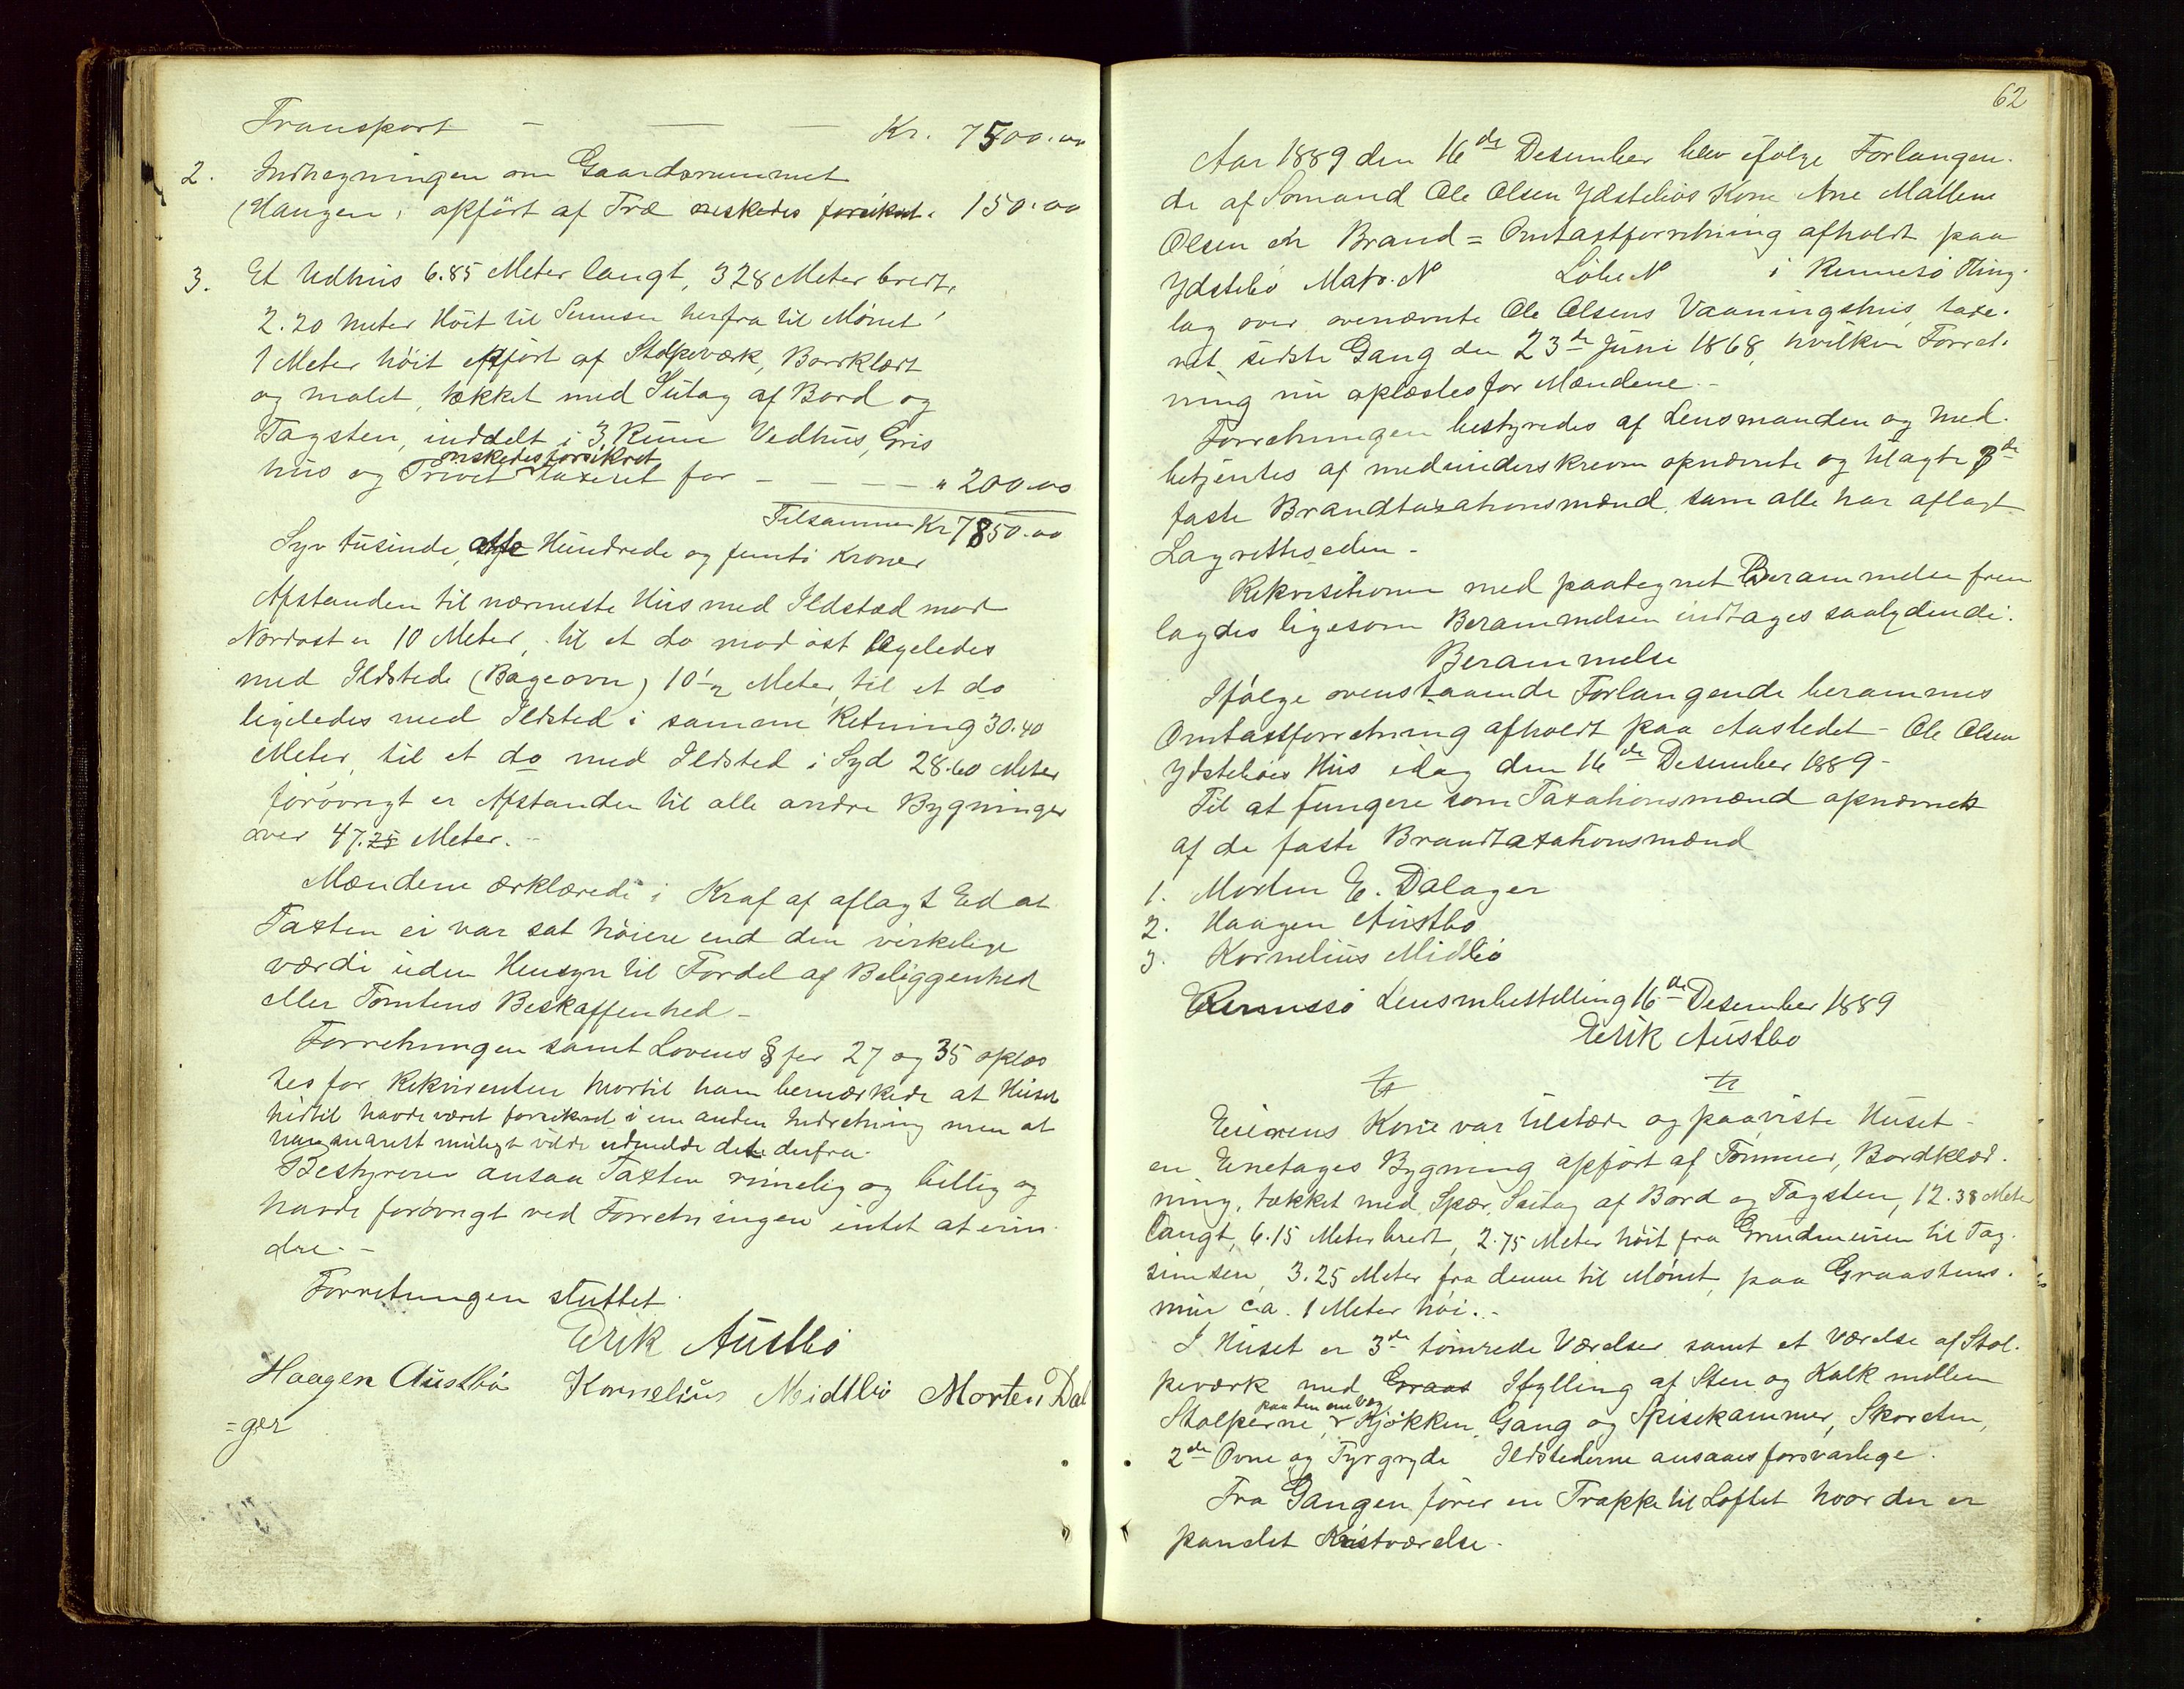 Transport — — — Kr. 7500.00
2. Indhegningen om Gaardsrummet
(Haugen, opført af Træ ønskedes forsikret. 150.00
3. Et Udhus 6.85 Meter langt, 3 28 Meter bredt,
2.20 meter Høit til Simsen herfra til Mønet
1 Meter høit opført af Stolpeværk, Bordklædt
og malet, tækket med Sutag af Bord og
Tagsten, inddelt i 3 Rum Vedhus, Gris
ønskedes forsikret
hus og Privet taxeret for — — — — " 200.00
Tilsammen Kr 7850.00
Syv tusinde, otte Hundrede og femti Kroner
Afstanden til nærmeste Hus med Ildsted mod
Nordost er 10 Meter, til et do mod øst ligeledes
med Ildstede (Bageovn) 10 1/2 Meter, til et do
ligeledes med Ildsted i samme Retning 30.40
Meter, til et do med Ildsted i Syd 28.60 Meter
forøvrigt er Afstanden til alle andre Bygninger
over 47.25 Meter. -
Mændene erklærede i Kraf af aflagt Ed at
Taxten ei var sat høiere end den virkelige
værdi uden Hensyn til Fordel af Beliggenhed
eller Tomtens Beskaffenhed -
Forretningen samt Lovens § fer 27 og 35 oplæs
tes for Rekvirenten hvortil han bemærkede at Huset
hidtil havde været forsikret i en anden Indretning men at
han snarest muligt vilde udmelde dete derfra.
Bestyreren ansaa Taxten rimelig og billig og
havde forøvrigt ved Forretningen intet at erin
dre. -
Forretningen sluttet.
Erik Austbø
Haagen Austbø Kornelius Midtbø Morten Dal
=ger
62
Aar 1889 den 16de Desember blev ifølge Forlangen-
de af Sømand Ole Olsen Ydstebøs Kone Ane Mallene
Olsen en Brand = Omtaxtforretning afholdt paa
Ydstebø Matr. No Løbe No i Rennesø Thing-
lag over ovenævnte Ole Olsens Vaaningshus, taxe-
ret sidste Gang den 23de Juni 1868, hvilken Forret-
ning nu oplæstes for Mændene. -
Forretningen bestyredes af Lensmanden og med-
betjentes af medunderskrevne opnævnte og tilagte 3de
faste Brandtaxationsmænd, som alle har aflagt
Lagrettiseden -
Rekvisitionen med paategnet Berammelse frem
lagdes ligesom Berammelsen indtages saalydende:
Berammelse
Ifølge ovenstaaende Forlangende berammes
Omtaxtforretning afholdt paa Aastedet - Ole Olsen
Ydstebøes Hus idag den 16de Desember 1889 -
Til at fungere som Taxationsmænd opnævnes
af de faste Brandtaxationsmænd
1. Morten E. Dalager
2. Haagen Austbø
3. Kornelius Midbø
Rennesø Lensmbestilling 16de Desember 1889
Erik Austbø
Eierens Kone var tilstæde og paaviste Huset -
en Enetages Bygning opført af Tømmer, Bordklæd-
ning, tækket med Spær, Sutag af Bord og Tagsten, 12.38 Meter
langt, 6.15 Meter bredt, 2.75 Meter høit fra Grundmuren til Tag-
simsen, 3.25 Meter fra denne til Mønet, paa Graastens-
mur ca. 1 Meter høi. -
I Huset er 3de tømrede Værelser samt et Værelse af Stol-
peværk med Graas Ifylling af Sten og Kalk mellem
paa den ene Væg
Stolperne, Kjøkken, Gang og Spisekammer, Skorsten,
2de Ovne og Fyrgryde Ildstederne ansaaes forsvarlige.
Fra Gangen fører en Trappe til Loftet hvor der er
panelet Kvistværelse.